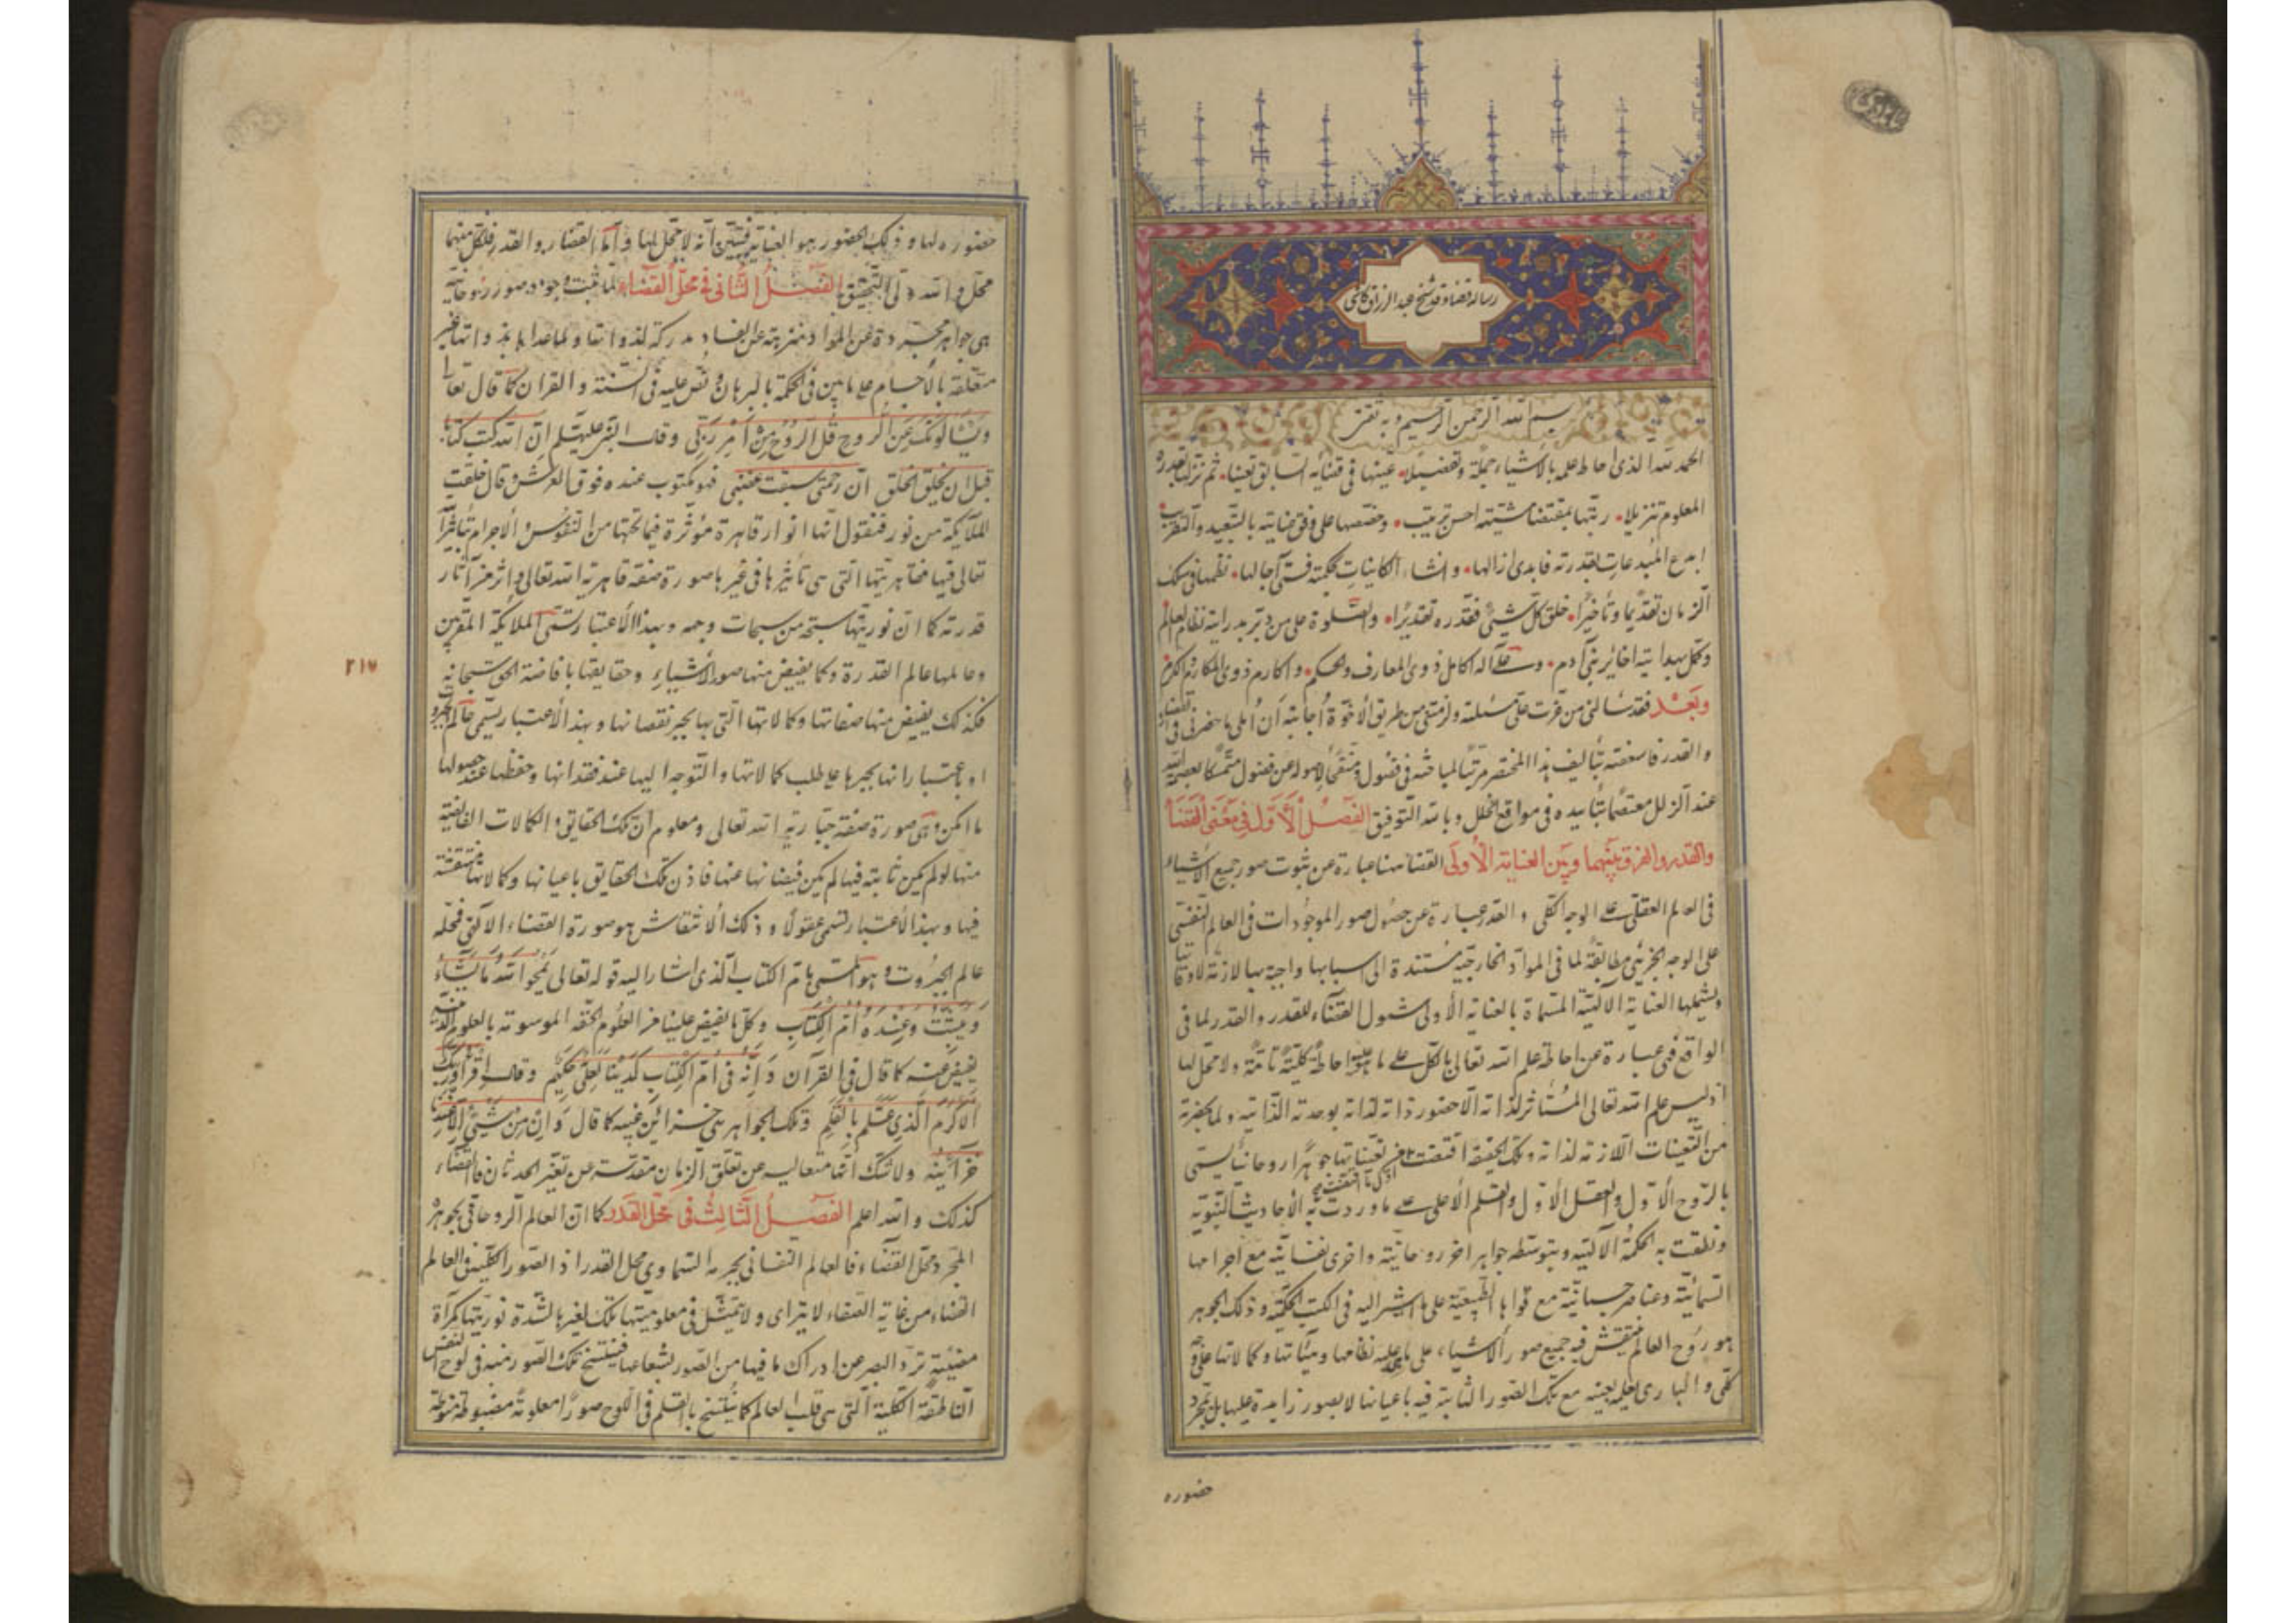 رساله قضا و قدر شیخ عبد الرزاق کاشی
بسم الله الرحمن الرحیم وبه نثق
الحمد لله الذی احاط علمه بالاشیاء جملة وتفصیلا • عینها فی قضائه السابق تعینا • ثم نزلها بقدره
المعلوم تنزیلا • رتبها بمقتضا مشیته احسن ترتیب • وخصصها علی وفق عنایته بالتبعید والتقریب
ابدع المبدعات بقدرته فابدی ازالها • وانشاء الکاینات بحکمته فسمی آجالها • نظمها فی سلک
الزمان تقدیما وتأخیرا • خلق کل شیئ فقدره تقدیرا • والصلوة علی من دبر بدرایته نظام العالم
وکمل بهدایته اخائر بنی آدم • وعلی آله الکامل ذوی المعارف والحکم • واکارم ذوی المکارم والکرم
وبعد فقد سألنی من عزت علی مسئلته ولزمتنی من طریق الاخوة اجابته أن أملی ما حضرنی فی القضاء
والقدر فاسعفته بتألیف هذا المختصر مرتبا لمباحثه فی فصول ومنقحا لاصوله عن فضول متمسکا بعصمة الله
عند الزلل معتصما بتأییده فی مواقع الخلل وبالله التوفیق الفصل الاول فی معنی القضا
والقدر والفرق بینهما وبین العنایة الاولی القضا هنا عبارة عن ثبوت صور جمیع الاشیاء
فی العالم العقلی علی الوجه الکلی والقدر عبارة عن حصول صور الموجودات فی العالم النفسی
علی الوجه الجزیئی مطابقة لما فی المواد الخارجیه مستندة الی اسبابها واجبة بها لازمة لاوقاتها
ویشملها العنایة الالهیة المسماة بالعنایة الأولی شمول القضاء للقدر والقدر لما فی
الواقع فهی عبارة عن احاطة علم الله تعالی بالکل علی ما هو علیه احاطة کلیة تامة ولا محل لها
اذ لیس علم الله تعالی المستأثر لذاته الا حضور ذاته لذاته بوحدته الذاتیه ولما یحضرته
من التعینات اللازمة لذاته وتلک الحقیقة اقتضت من تعیناتها جوهرا روحانیا یسمی
بالروح الاول والعقل الاول والقلم الاعلی علی ما وردت به الاحادیث النبویه
ونطقت به الحکمة الالهیه وبتوسطه جواهر اخر روحانیة واخری نفسانیة مع اجرامها
السمائیة وعناصر جسمانیة مع قواها الطبیعیة علی ما اشیر الیه فی الکتب الحکمیة وذلک الجوهر
هو روح العالم ینتقش فیه جمیع صور الاشیاء علی ما علیه نظامها وهیئاتها وکمالاتها علی وجه
کلی والباری یعلمه بعینه مع تلک الصور الثابتة فیه باعیانها لا بصور زایدة علیها بل بمجرد
حضوره
حضوره لها وذلک الحضور هو العنایة فتبین انه لا محل لها واما القضاء والقدر فلکل منهما
محل والله ولی التحقیق الفصل الثانی فی محل القضاء لما ثبت وجود صور روحانیة
هی جواهر مجردة عن المواد منزهة عن الفساد مدرکة لذواتها ولما عداها بذواتها غیر
متعلقة بالأجسام علی ما بین فی الحکمة بالبرهان ونص علیه فی السنة والقران کما قال تعالی
ویسألونک عن الروح قل الروح من أمر ربی وقال النبی علیه السلم ان الله کتب کتابا
قبل ان یخلق الخلق ان رحمتی سبقت غضبی فهو مکتوب عنده فوق العرش وقال خلقت
الملایکة من نور فنقول انها انوار قاهرة مؤثرة فیما تحتها من النفوس والاجرام بتأثیر الله
تعالی فیها فقاهریتها التی هی تأثیرها فی غیرها صورة صفة قاهریة الله تعالی واثر من آثار
قدرته کما ان نوریتها سبحة من سبحات وجهه وبهذا الاعتبار یسمی الملایکة المقربین
وعالمها عالم القدرة وکما یفیض منها صور الاشیاء وحقایقها بافاضة الحق سبحانه
۲۱۷
فکذلک یفیض منها صفاتها وکمالاتها التی بها یجبر نقصانها وبهذا الأعتبار یسمی عالم الجبروت
او باعتبار انها یجبرها علی طلب کمالاتها والتوجه الیها عند فقدانها وحفظها عند حصولها
ما امکن وهی صورة صفة جباریة الله تعالی ومعلوم ان تلک الحقایق والکمالات الفایضة
منها لو لم یکن ثابتة فیها لم یکن فیضانها عنها فاذن تلک الحقایق باعیانها وکمالاتها منتقشة
فیها وبهذا الاعتبار تسمی عقولا وذلک الانتقاش هو صورة القضاء الالهی فمحله
عالم الجبروت وهو المسمی بام الکتاب الذی اشار الیه قوله تعالی یمحو الله ما یشاء
ویثبت وعنده أم الکتاب وکل ما یفیض علینا من العلوم الحقه الموسومة بالعلوم اللدنیة
یفیض عنه کما قال فی القرآن وانه فی ام الکتاب لدینا لعلی حکیم وقال اقرأ وربک
الاکرم الذی علم بالقلم وتلک الجواهر هی خزائن غیبه کما قال وان من شیئ الا عندنا
خزائنه ولا شک انها متعالیه عن تعلق الزمان مقدسة عن تغیر الحدثان فالقضاء
کذلک والله اعلم الفصل الثالث فی محل القدر کما ان العالم الروحانی بجوهره
المجرد محل القضاء فالعالم النفسانی بجرمه السماوی محل القدر اذ الصور الکلیة فی العالم
القضاء من غایة الصفاء لا یترای ولا یتمثل فی معلومیتها تلک لغیرها لشدة نوریتها کمرآة
مضیئة ترد البصر عن ادراک ما فیها من الصور بشعاعها فینتسخ تلک الصور منه فی لوح النفس
الناطقة الکلیة التی هی قلب العالم کما ینتسخ بالقلم فی اللوح صورا معلومة مضبوطة منوطة